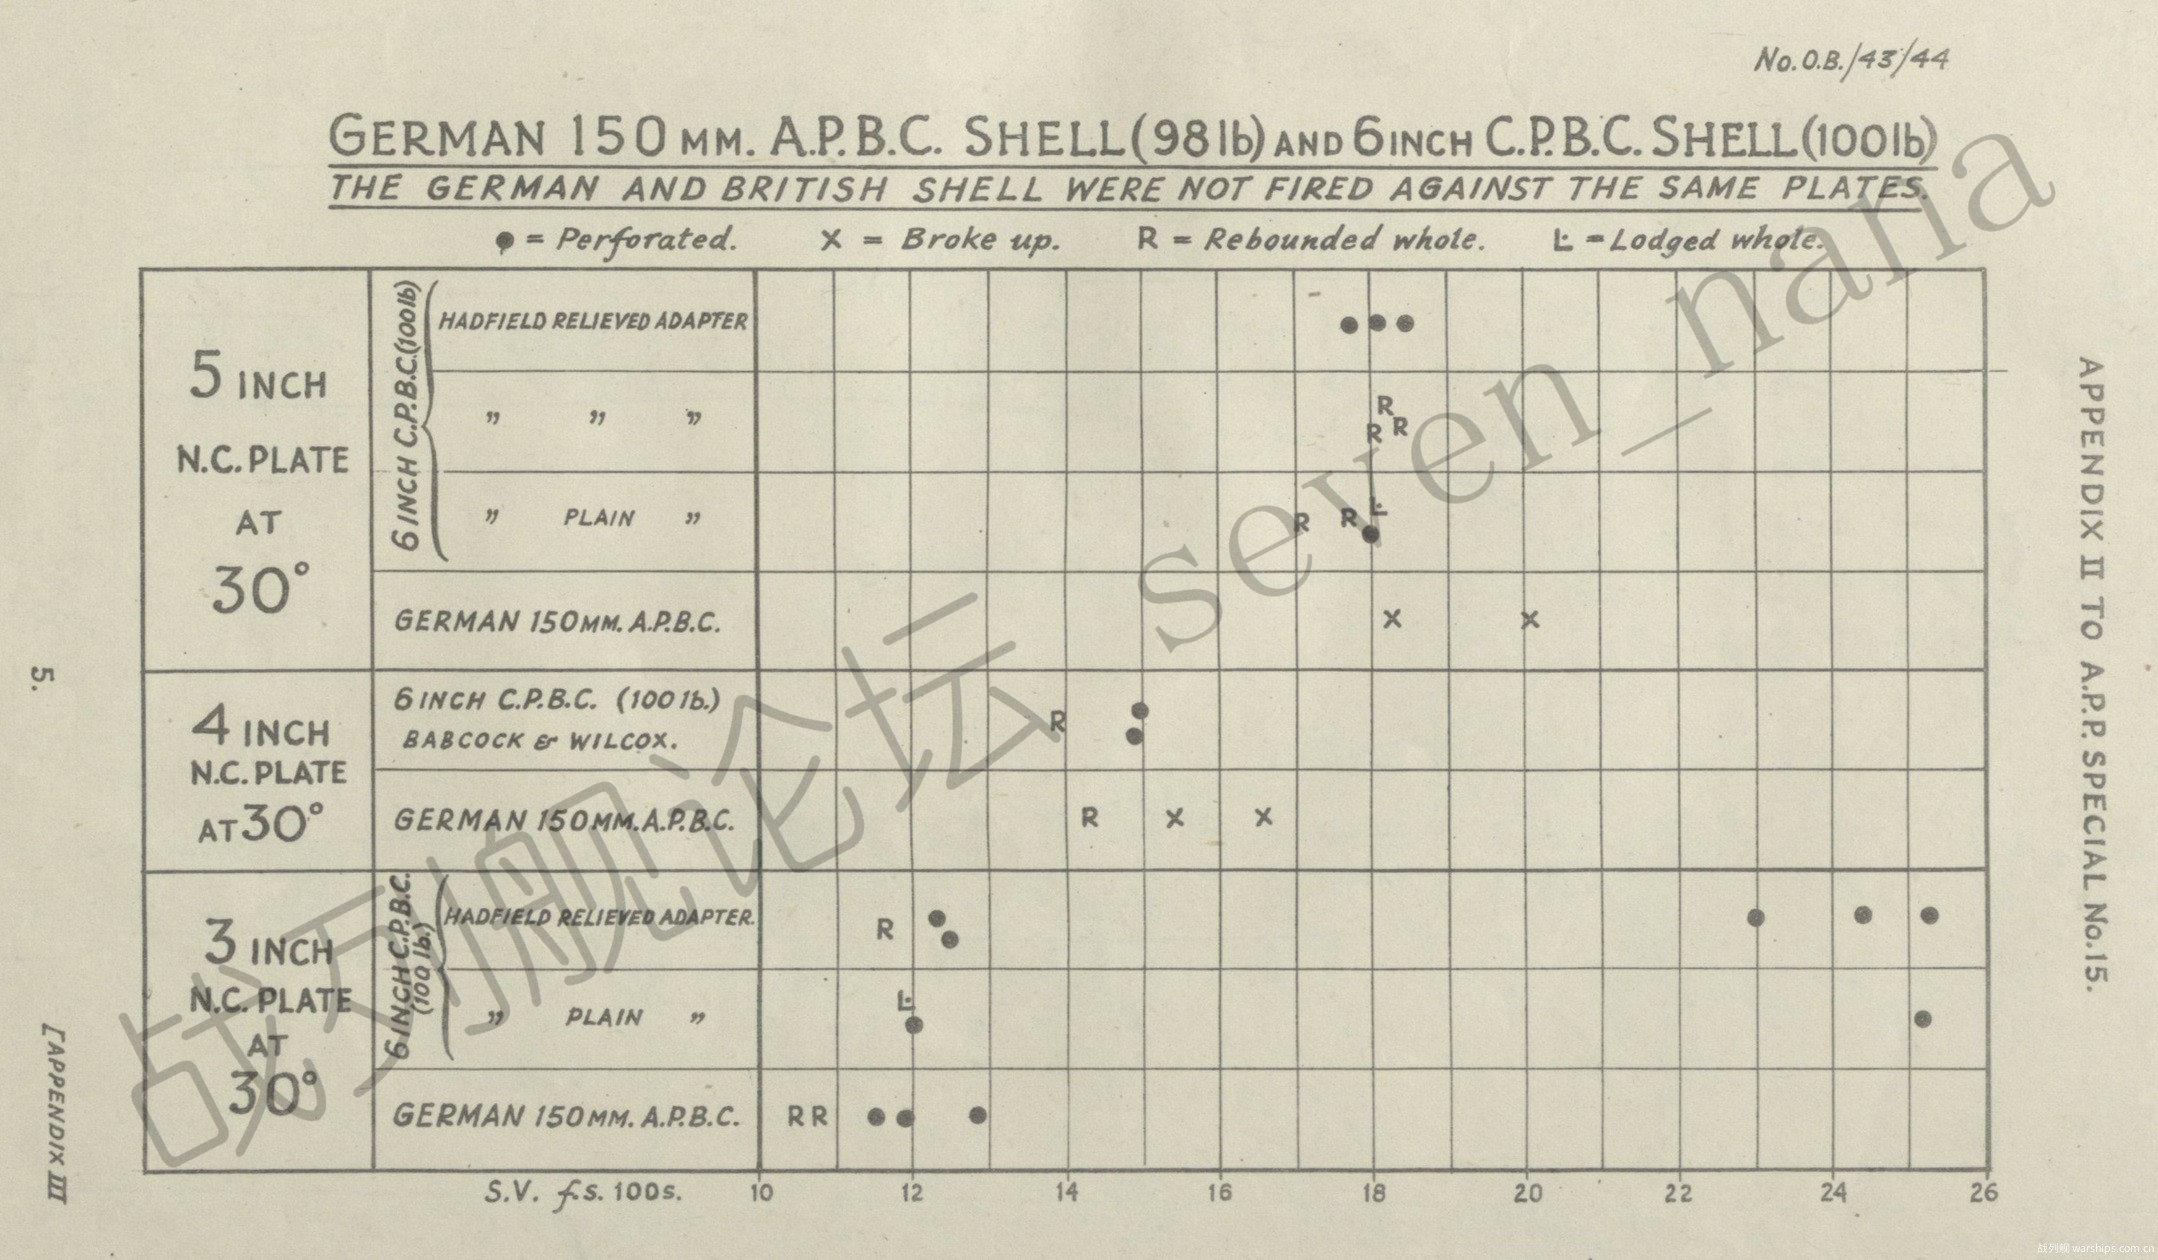 No. O.B./43/44
GERMAN 150 MM. A.P.B.C. SHELL (98 lb) AND 6 INCH C.P.B.C. SHELL (100 lb)
THE GERMAN AND BRITISH SHELL WERE NOT FIRED AGAINST THE SAME PLATES.
● = Perforated. X = Broke up. R = Rebounded whole. L = Lodged whole.
5 INCH
N.C. PLATE
AT
30°
6 INCH C.P.B.C. (100 lb)
HADFIELD RELIEVED ADAPTER
" " "
R
R
R
" PLAIN "
L
R R
GERMAN 150 MM. A.P.B.C.
X X
4 INCH
N.C. PLATE
AT 30°
6 INCH C.P.B.C. (100 lb.)
BABCOCK & WILCOX.
R
GERMAN 150 MM. A.P.B.C.
R X X
3 INCH
N.C. PLATE
AT
30°
6 INCH C.P.B.C.
(100 lb.)
HADFIELD RELIEVED ADAPTER.
R
" PLAIN "
L
GERMAN 150 MM. A.P.B.C.
R R
S.V. f.s. 100s. 10 12 14 16 18 20 22 24 26
5.
[APPENDIX III
APPENDIX II TO A.P.P. SPECIAL No. 15.
战列舰论坛 seven_nana
战列舰 warships.com.cn